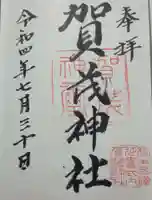 奉拝
賀茂神社
令和四年七月三十日